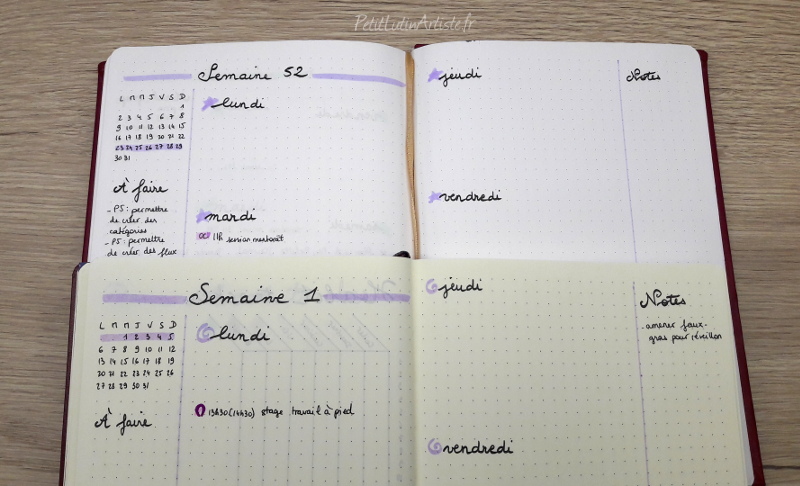 PetitLutinArtiste.fr
Semaine 52
L M M J V S D
1
2 3 4 5 6 7 8
9 10 11 12 13 14 15
16 17 18 19 20 21 22
23 24 25 26 27 28 29
30 31
À faire
- PS : permettre
de créer des
catégories
- PS : permettre
de créer des flux
lundi
mardi
11h
jeudi
vendredi
Notes
Semaine 1
L M M J V S D
1 2 3 4 5
6 7 8 9 10 11 12
13 14 15 16 17 18 19
20 21 22 23 24 25 26
27 28 29 30 31
À faire
lundi
13h30 (14h30) stage travail à pied
jeudi
vendredi
Notes
- amener foux-
gras pour réveillon